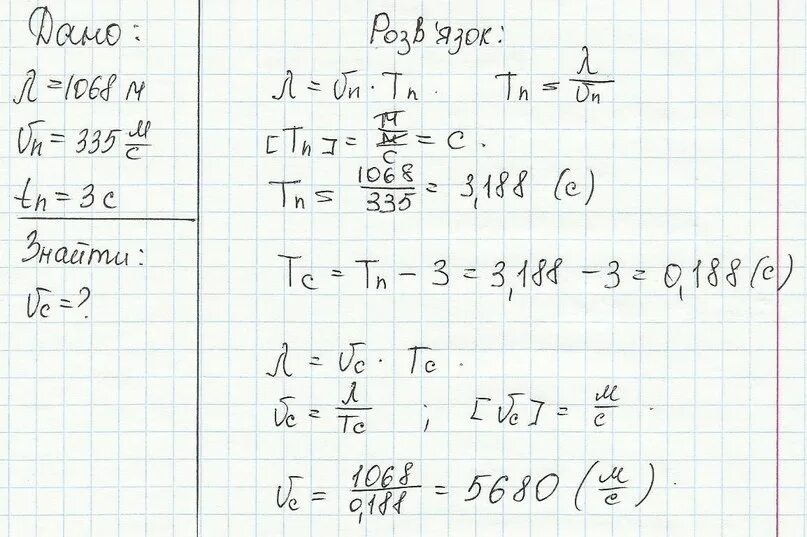 Дано:
λ = 1068 м
υп = 335 м/с
tп = 3 с
Знайти:
υс = ?
Розв'язок:
λ = υп · Tп. Tп = λ/υп
[Tп] = м/(м/с) = с.
Tп = 1068/335 = 3,188 (с)
Tс = Tп − 3 = 3,188 − 3 = 0,188 (с)
λ = υс · Tс.
υс = λ/Tс ; [υс] = м/с.
υс = 1068/0,188 = 5680 (м/с).